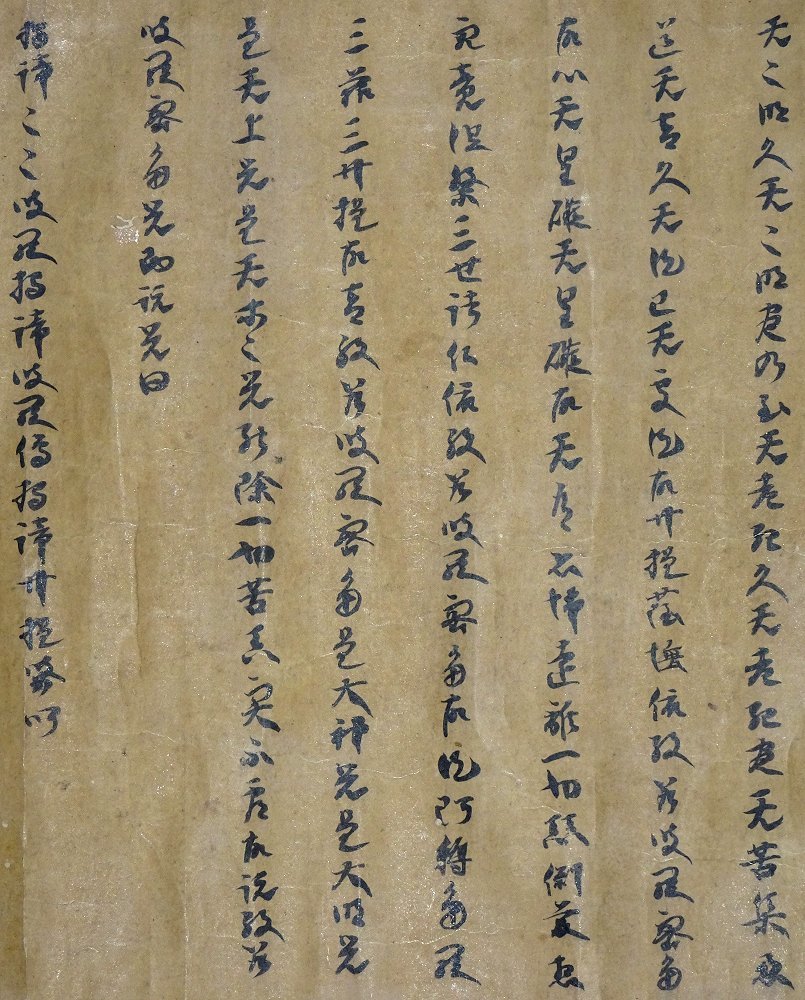 无〻明亦无〻明尽乃至无老死亦无老死尽无苦集滅
道无智亦无得已无所得故菩提薩埵依般若波羅蜜多
故心无罣礙无罣礙故无有恐怖遠離一切顛倒夢想
究竟涅槃三世諸仏依般若波羅蜜多故得阿耨多羅
三藐三菩提故知般若波羅蜜多是大神咒是大明咒
是无上咒是无等〻咒能除一切苦真實不虛故說般若
波羅蜜多咒即說咒曰
揭諦〻〻波羅揭諦波羅僧揭諦菩提呵